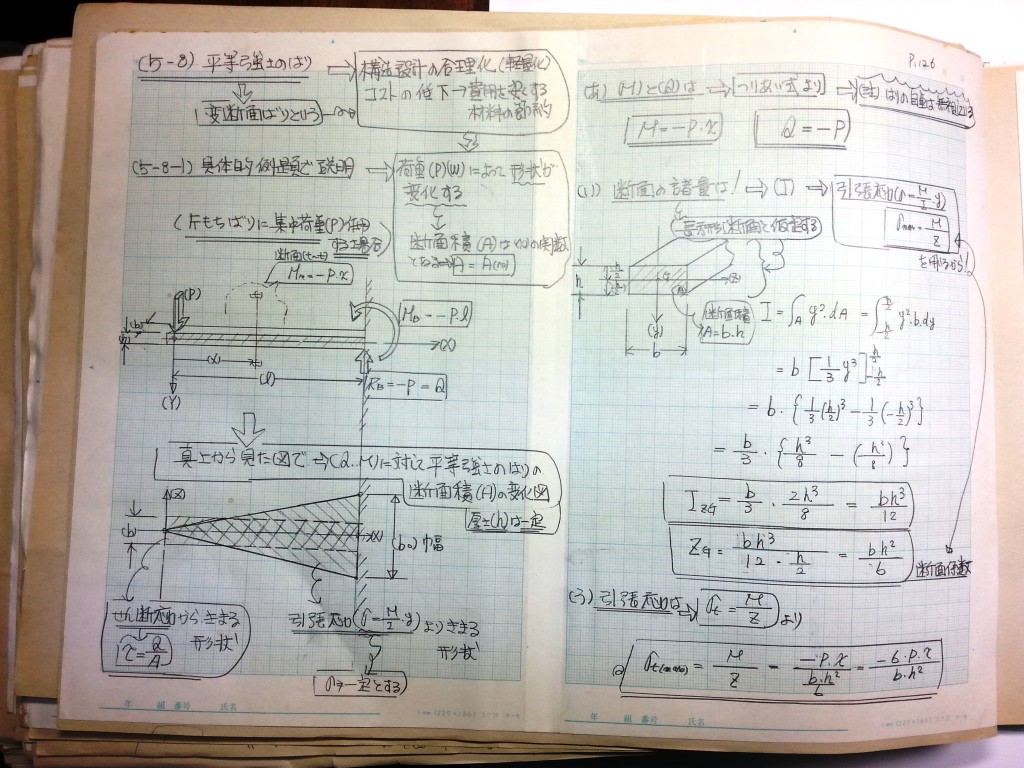 (5-8) 平等強さのはり
変断面ばりという
構造設計の合理化(軽量化)
コストの低下→
材料の節約
(5-8-1) 具体的例題で説明
荷重(P)(W)によって形状が
変化する
断面積(A)は(x)の関数
となる→A = A(x)
(片もちばり)に集中荷重(P)作用
する場合
断面
M = -P·x
(P)
(b)
M_B = -P·l
(x)
(X)
(l)
(Y)
R_B = -P = Q
真上から見た図で→(Q, M)に対して平等強さのはりの
断面積(A)の変化図
厚さ(h)は一定
(Z)
(b)
(X)
巾幅
せん断応力からきまる
形状
τ = Q/A
引張応力(σ = M/I·y)よりきまる
形状
σ→一定とする
P.126
(あ) (M)と(Q)は
つりあい式より
(注) はりの自重は無視している
M = -P·x
Q = -P
(い) 断面の容量は!→(I)→
引張応力σ = M/I·y
σmax = M/Z
を用いるから!
長方形断面と仮定する
h
h/2
h/2
G
(Z)
(y)
b
断面積
A = b·h
I = ∫_A y²·dA = ∫_{-h/2}^{h/2} y²·b·dy
= b [1/3 y³]_{-h/2}^{h/2}
= b·{1/3(h/2)³ - 1/3(-h/2)³}
= b/3·{h³/8 - (-h³/8)}
I_ZG = b/3 · 2h³/8 = bh³/12
Z_G = bh³/(12·h/2) = bh²/6
断面係数
(う) 引張応力は
σt = M/Z
より
σt(max) = M/Z = -P·x/(b·h²/6) = -6·P·x/(b·h²)
年 組 番号 氏名
年 組 番号 氏名